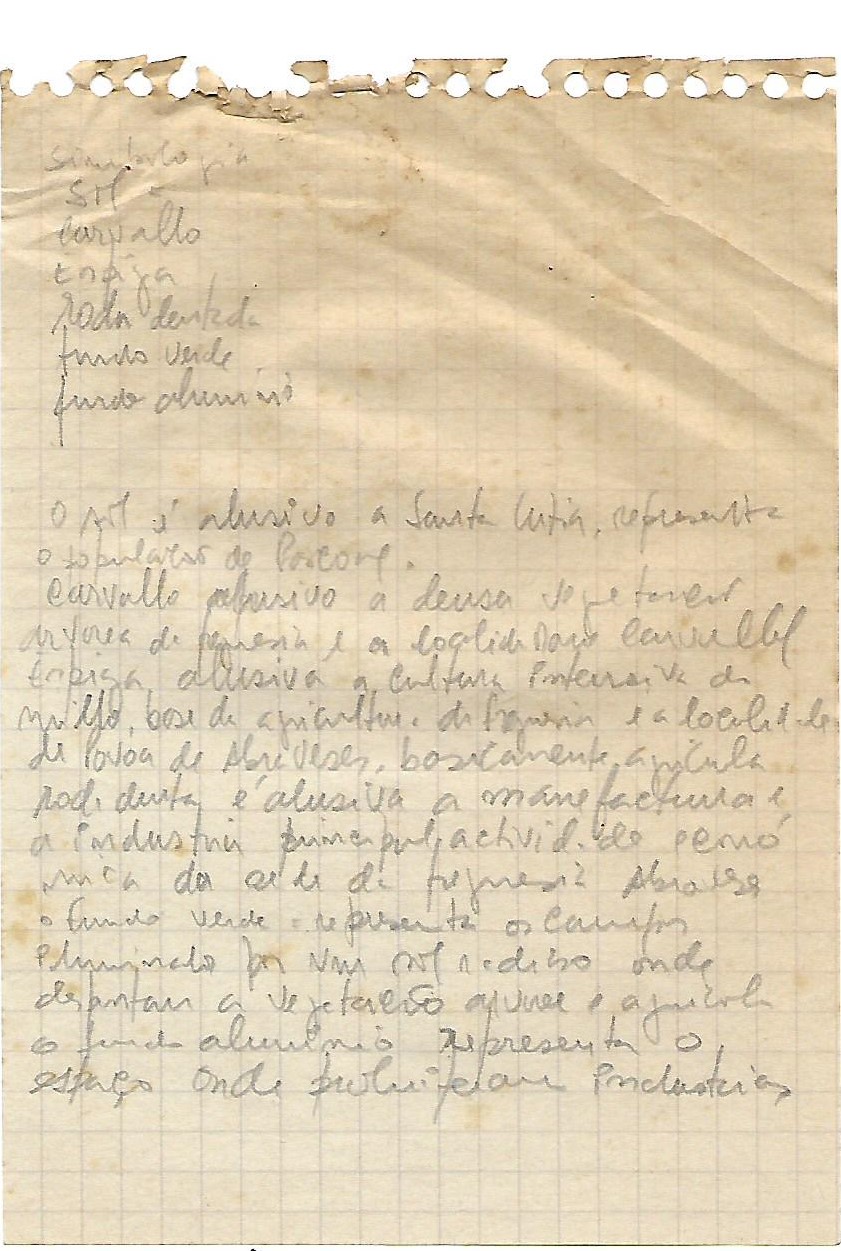 Simbologia
Sol -
Carvalho
Espiga
Roda dentada
fundo verde
fundo aluminio
O sol é alusivo a Santa Luzia, representa
o de Pascoal.
Carvalho alusivo a densa vegetação
arvorea da freguesia e a localidade
Espiga, alusiva a cultura intensiva do
milho, base da agricultura da freguesia e a localidade
de Povoa de Abraveses, basicamente agricula
roda é alusiva a manefactura e
a industria principal actividade econó
mica da sede da freguesia Abraveses
o fundo verde - representa os campos
por um sol radioso onde
a vegetação arvorea e agricola
o fundo aluminio representa o
espaço onde proliferam industrias